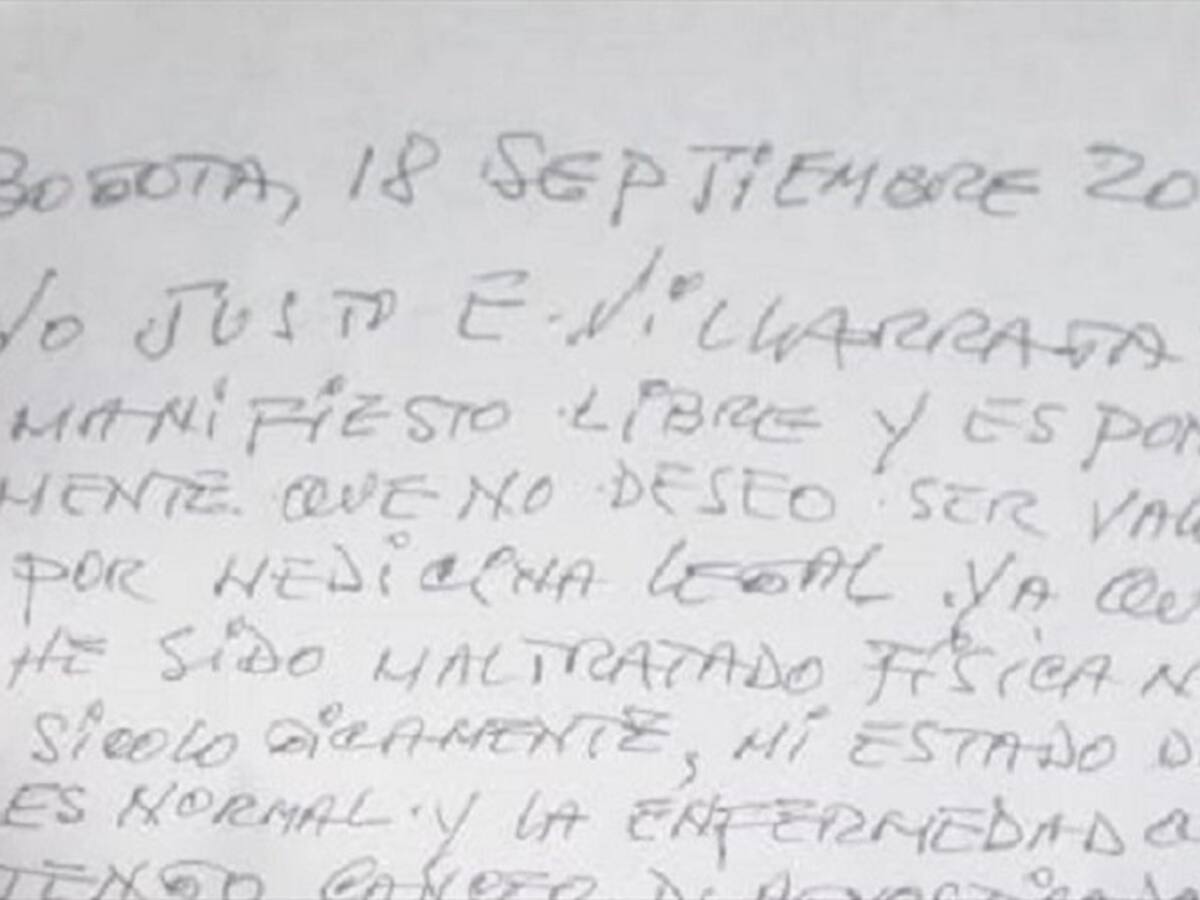 BOGOTA, 18 SEPTIEMBRE 20
YO JUSTO E. VILLARRAGA
MANIFIESTO LIBRE Y ESPON
MENTE QUE NO DESEO SER VAL
POR MEDICINA LEGAL. YA QUE
HE SIDO MALTRATADO FISICA N
SICOLOGICAMENTE, MI ESTADO D
ES NORMAL. Y LA ENFERMEDAD Q
TENGO CANCER